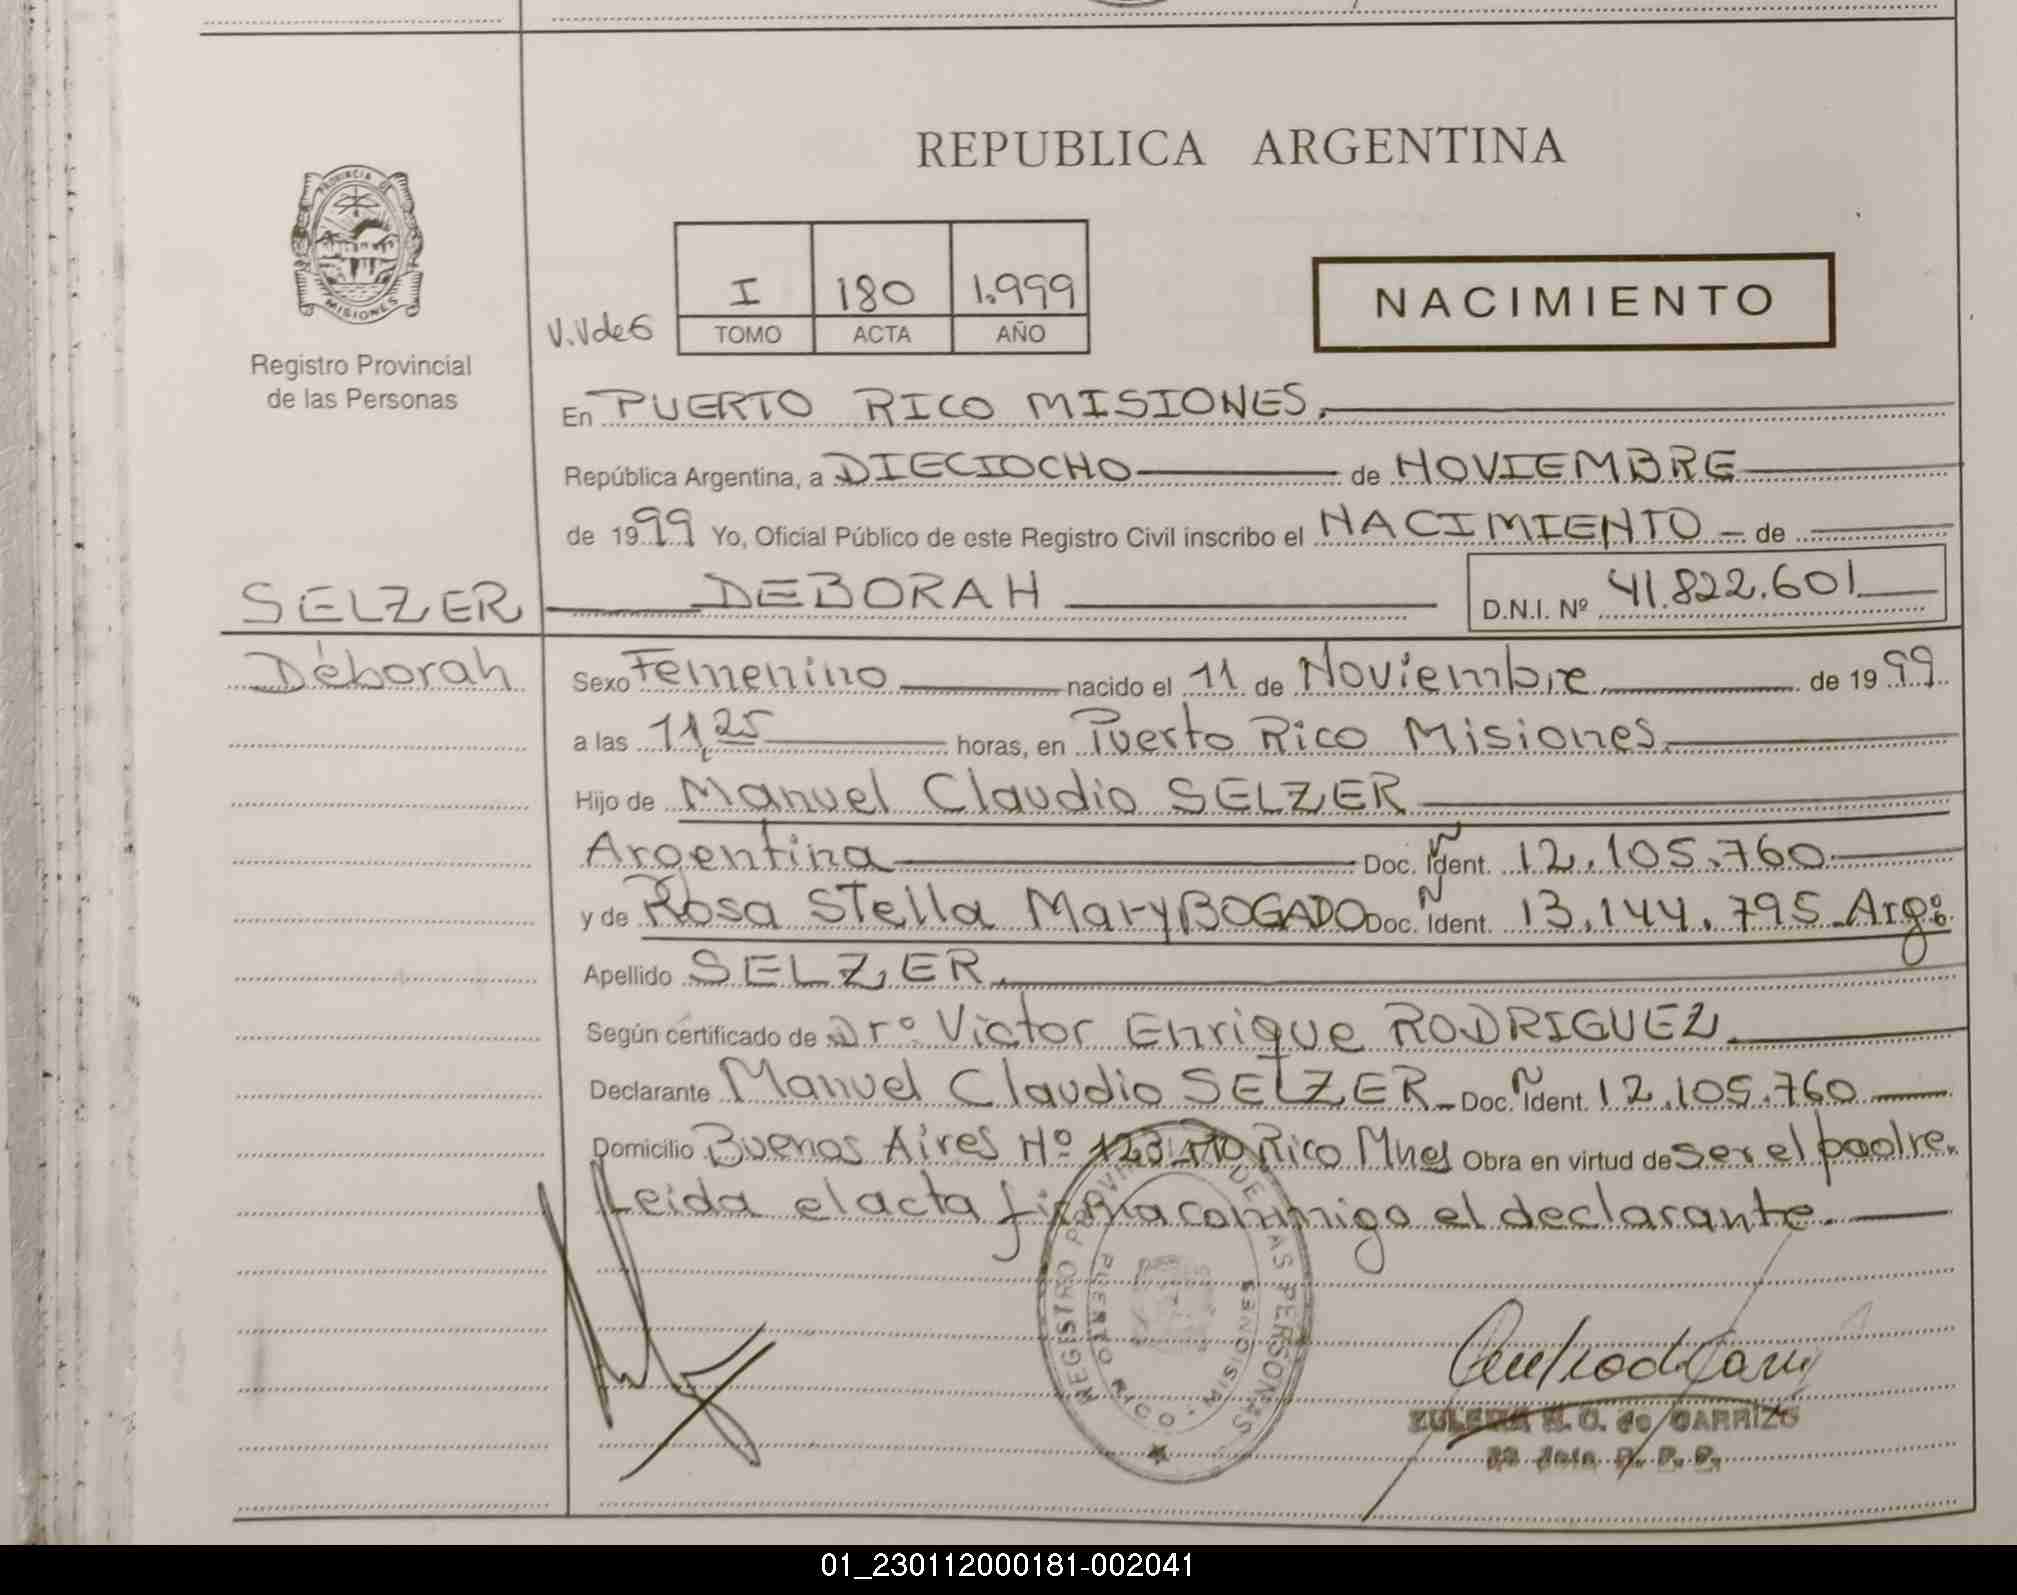 REPUBLICA ARGENTINA
PROVINCIA DE MISIONES
Registro Provincial
de las Personas
V.VdeG
I 180 1.999
TOMO ACTA AÑO
NACIMIENTO
En PUERTO RICO MISIONES.
República Argentina, a DIECIOCHO de NOVIEMBRE
de 1999 Yo, Oficial Público de este Registro Civil inscribo el NACIMIENTO de
SELZER DEBORAH D.N.I. Nº 41.822.601
Déborah
Sexo Femenino nacido el 11 de Noviembre de 1999
a las 11,25 horas, en Puerto Rico Misiones
Hijo de Manuel Claudio SELZER
Argentina Doc. Ident. 12.105.760
y de Rosa Stella Mary BOGADO Doc. Ident. 13.144.795 Arg:
Apellido SELZER.
Según certificado de Dr. Victor Enrique RODRIGUEZ
Declarante Manuel Claudio SELZER Doc. Ident. 12.105.760
Domicilio Buenos Aires Nº 123 Rico Mnes Obra en virtud de ser el padre.
Leida el acta firma conmigo el declarante.
REGISTRO PROVINCIAL DE LAS PERSONAS
PUERTO RICO - MISIONES
de CARRIZO
01_230112000181-002041